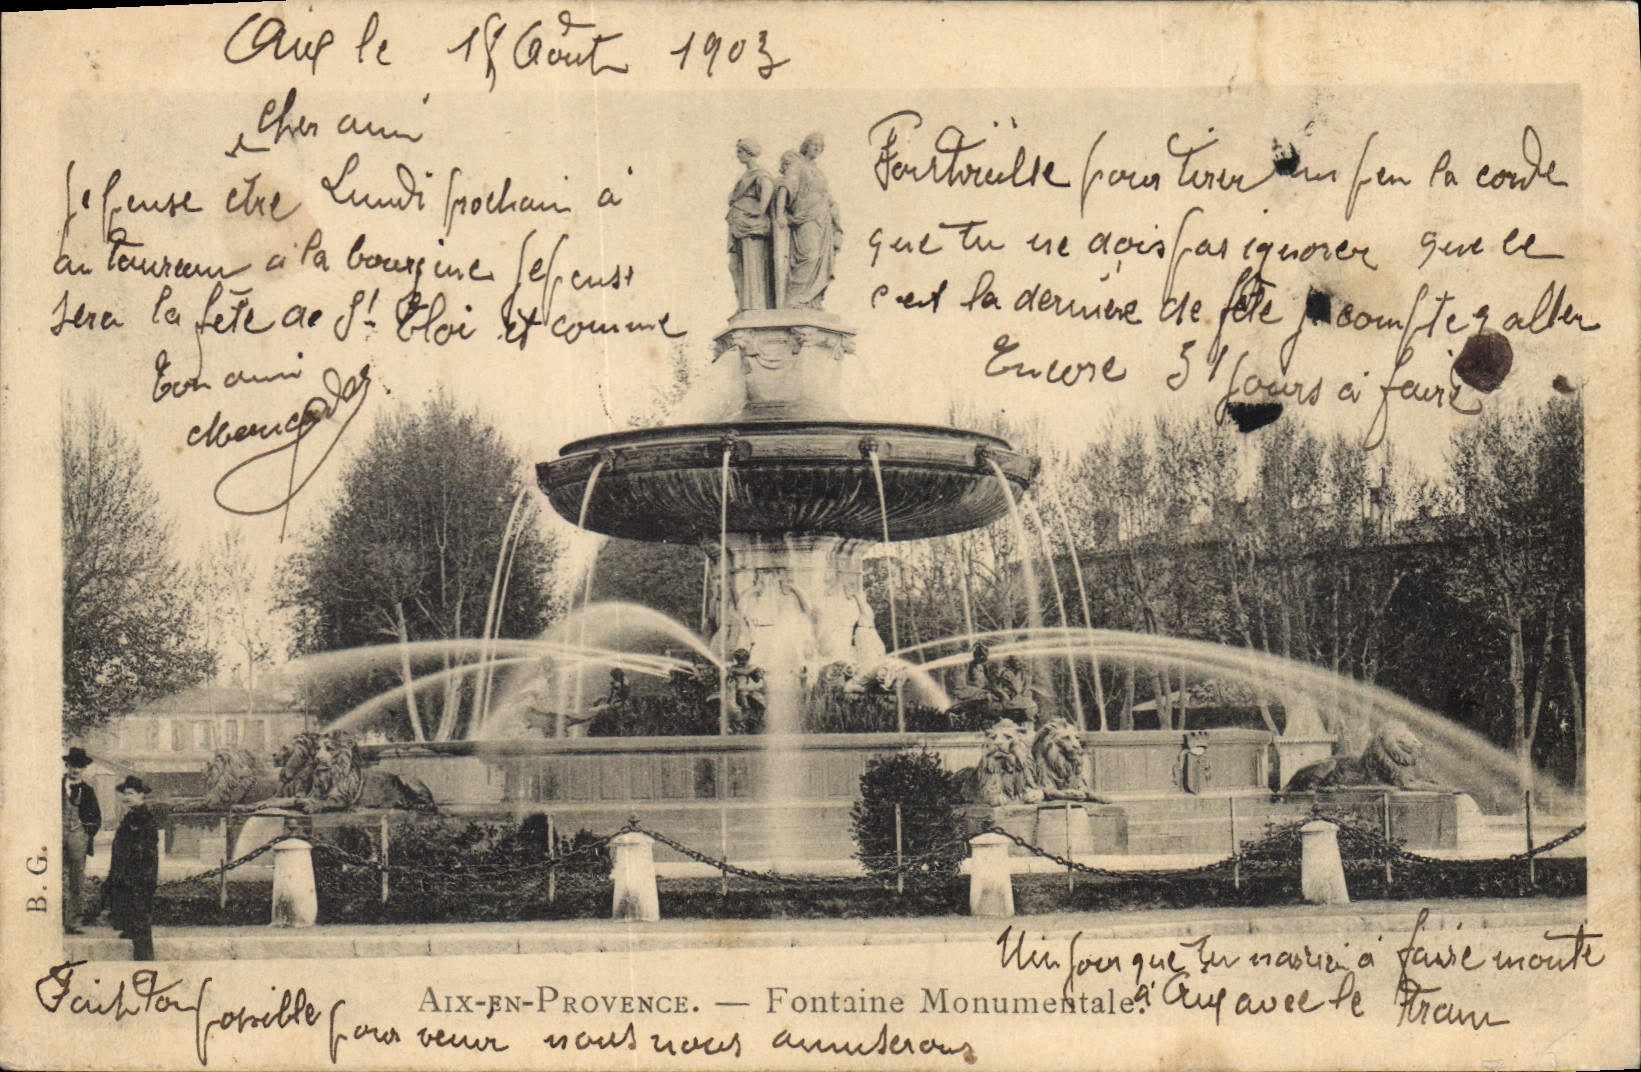 Aix le 18 Août 1903
Cher ami
Je pense être Lundi prochain à
au taureau à la bourgine Je pense
sera la fête de St Eloi et comme
Ton ami
pour tirer un peu la corde
que tu ne dois pas ignorer que ce
c'est la dernière de fête je compte y aller
Encore 31 jours à faire
B. G.
Un jour que tu à faire monte
à Aix avec le Tram
AIX-EN-PROVENCE. — Fontaine Monumentale.
Fait ton possible pour venir nous nous amuserons